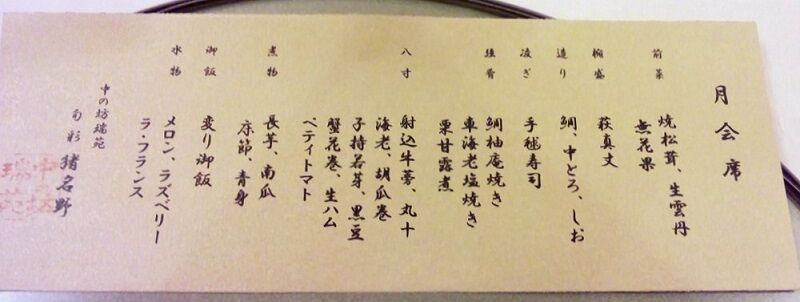 月会席
前菜
焼松茸、生雲丹
無花果
椀盛
萩真丈
造り
鯛、中とろ、しお
凌ぎ
手毬寿司
強肴
鯛柚庵焼き
車海老塩焼き
栗甘露煮
八寸
射込牛蒡、丸十
海老、胡瓜巻
子持若芽、黒豆
蟹花巻、生ハム
ペティトマト
煮物
長芋、南瓜
床節、青身
御飯
変り御飯
水物
メロン、ラズベリー
ラ・フランス
中の坊瑞苑
旬彩 猪名野